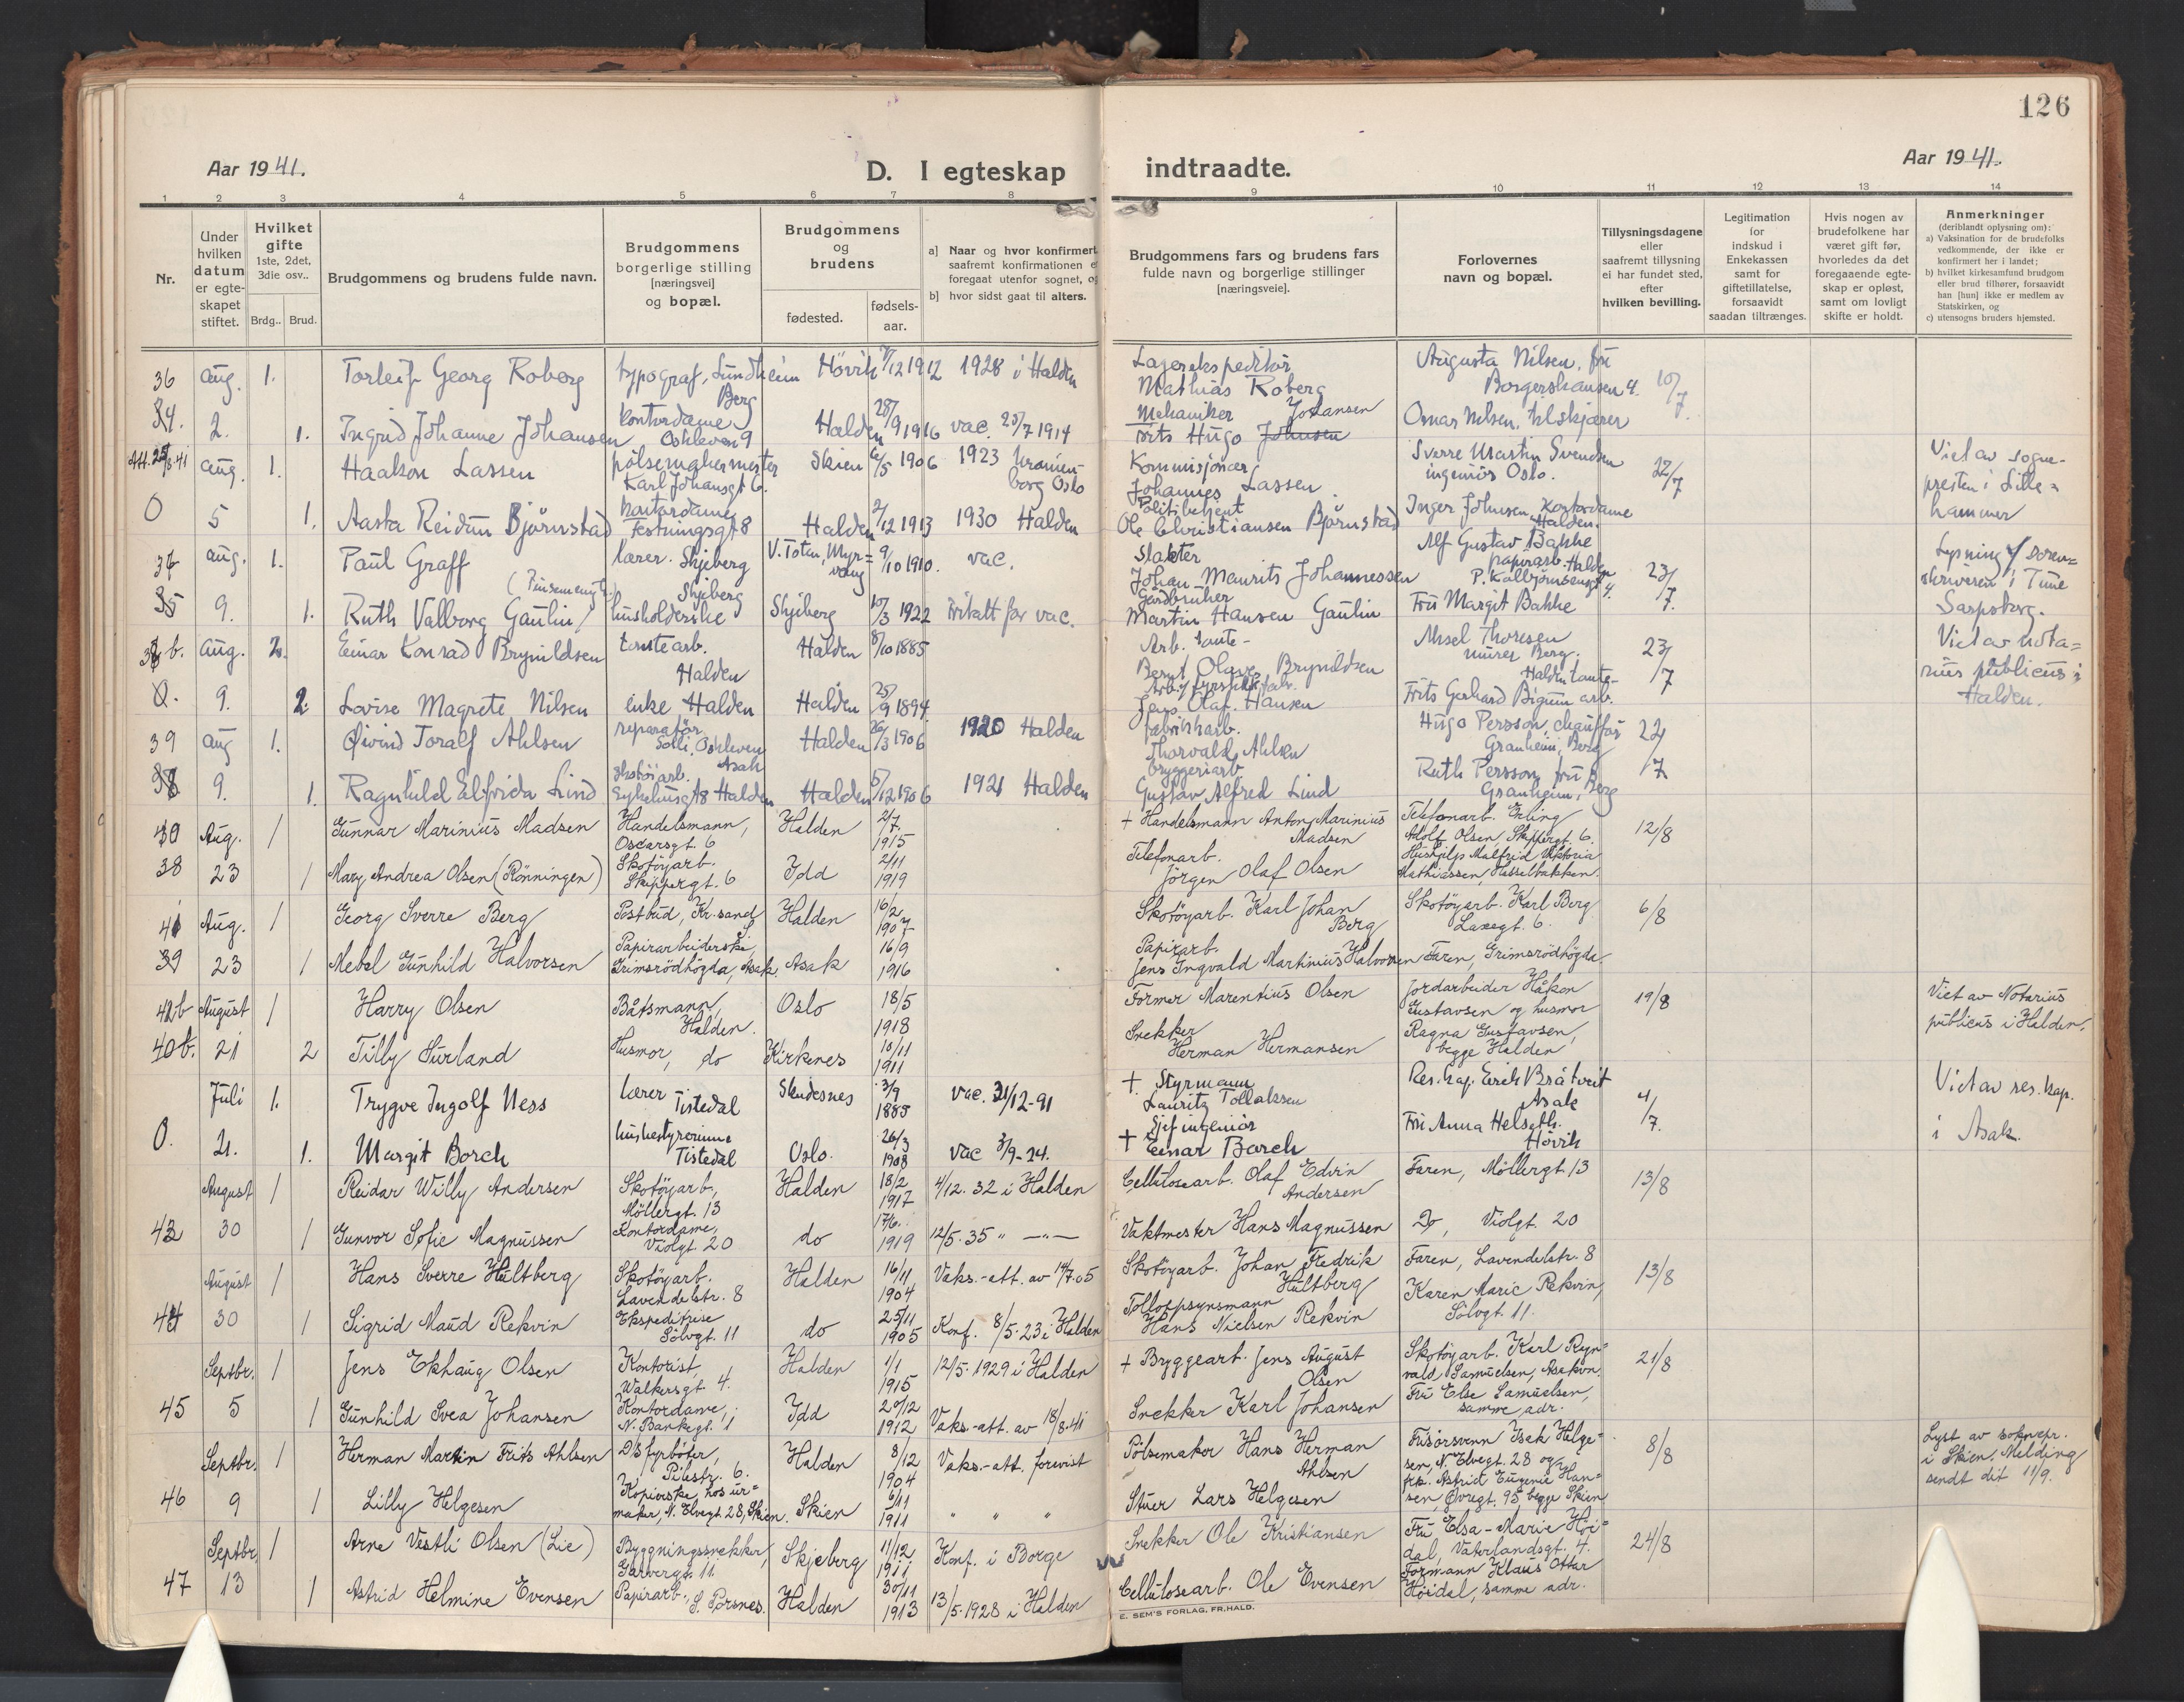 126
Aar 1941.
D. I egteskap indtraadte.
Aar 1941.
1 2 3 4 5 6 7 8 9 10 11 12 13 14
Nr.
Under hvilken datum er egteskapet stiftet.
Hvilket gifte 1ste, 2det, 3die osv..
Brdg.. Brud.
Brudgommens og brudens fulde navn.
Brudgommens borgerlige stilling [næringsvei] og bopæl.
Brudgommens og brudens
fødested.
fødsels-aar.
a) Naar og hvor konfirmert
saafremt konfirmationen e
foregaat utenfor sognet, og
b) hvor sidst gaat til alters.
Brudgommens fars og brudens fars
fulde navn og borgerlige stillinger
[næringsveie].
Forlovernes
navn og bopæl.
Tillysningsdagene
eller
saafremt tillysning
ei har fundet sted,
efter
hvilken bevilling.
Legitimation
for
indskud i
Enkekassen
samt for
giftetillatelse,
forsaavidt
saadan tiltrænges.
Hvis nogen av
brudefolkene har
været gift før,
hvorledes da det
foregaaende egte-
skap er opløst,
samt om lovligt
skifte er holdt.
Anmerkninger
(deriblandt oplysning om):
a) Vaksination for de brudefolks
vedkommende, der ikke er
konfirmert her i landet;
b) hvilket kirkesamfund brudgom
eller brud tilhører, forsaavidt
han [hun] ikke er medlem av
Statskirken, og
c) utensogns bruders hjemsted.
36 Aug. 1. Torleif Georg Roberg typograf, Sundheim Berg Hövik 7/12 1912 1928 i Halden Lagerekspeditör Mathias Roberg Augusta Nilsen, fru Borgershausen 4. 10/7
34. 2. 1. Ingrid Johanne Johansen Kontordame Oskleven 9 Halden 28/9 1916 vac. 25/7 1914 Mekaniker Johansen Frits Hugo Omar Nilsen, tilskjærer
Att. 25/8 41 Aug. 1. Haakon Lassen pölsemakermester Karl Johansgt 6. Skien 6/5 1906 1923 Uranienborg Oslo Kommisjonær Johannes Lassen Sverre Martin Svendsen ingeniör Oslo. 12/7 Viet av sogne-
presten i Lille=
hammer
O 5 1. Aasta Reidun Björnstad kontordame Festningsgt 8 Halden 2/12 1913 1930 Halden Politibetjent Ole Christiansen Björnstad Inger Johnsen, Kontordame Halden.
37 Aug. 1. Paul Graff lærer. Skjeberg V. Toten, Myrvang 9/10 1910. vac. Slakter Johan Maurits Johannessen Alf Gustav Bakke papirarb. Halden P. Kolbjørnsensgt 4. 23/7. Lysning v/ Soren-
skriveren i Tune
Sarpsborg.
35 9. 1. Ruth Valborg Gautin husholderske Skjeberg Skjeberg 10/3 1922 Fritatt for vac. Gårdbruker Martin Hansen Gautin Fru Margit Bakke
38 b. Aug. 2. Einar Konrad Brynildsen tomtearb. Halden Halden 8/10 1885 Arb. Bernt Olave Brynildsen Aksel Thoresen murer Berg. 23/7 Viet av nota=
rius publicus i
Halden.
O. 9. 2. Lovise Magrete Nilsen enke Halden Halden 25/9 1894 Lars Olaf Hansen Frits Gerhard Bigum arb.
39 Aug 1. Øivind Toralf Ahlsen reparatör Solli, Oskleven Asak Halden 26/3 1906 1920 Halden fabrikkarb. Thorvald Ahlsen Hugo Persson, chauffør Granheim, Berg 22/7
38 9. 1. Ragnhild Elfrida Lind skotöiarb. Sykehusgt 8 Halden Halden 5/12 1906 1921 Halden bryggeriarb. Gustav Alfred Lind Ruth Persson fru Granheim, Berg
40 Aug. 1 Gunnar Marinius Madsen Handelsmann, Oscarsgt. 6 Halden 2/7 1915 + Handelsmann Anton Marinius Madsen Telefonarb. Erling Adolf Olsen, Skippergt. 6. 12/8
38 23 1 Mary Andrea Olsen (Rönningen) Skotöyarb. Skippergt. 6 Idd 2/11 1919 Telefonarb. Jörgen Olaf Olsen Hushjelp Malfrid Viktoria Mathiassen, Hasselbakken.
41 Aug. 1 Georg Sverre Berg Postbud, Kr.sand S Halden 16/2 1907 Skotöyarb. Karl Johan Berg Skotöyarb. Karl Berg Laxegt. 6. 6/8
39 23 1 Mebel Gunhild Halvorsen Papirarbeiderske, Grimsrödhögda, Asak. Asak 16/9 1916 Papirarb. Jens Ingvald Martinius Halvorsen Faren, Grimsrödhögda.
42 b August 1 Harry Olsen Båtsmann, Halden. Oslo 18/5 1918 Former Marentius Olsen Jordarbeider Håkon Gustavsen og husmor 19/8 Viet av Notarius
publicus i Halden.
40 b. 21 2 Tilly Surland Husmor, do Kirkenes 10/11 1911 Snekker Herman Hermansen Ragna Gustavsen, begge Halden
Juli 1. Trygve Ingolf Ness Lærer Tistedal Skudesnes 3/9 1885 vac. 31/12-91 + Styrmann Lauritz Tollaksen Res. kap. Erich Bråtveit Asak 4/7. Viet av res. kap.
i Asak.
O. 21. 1. Margit Borch husbestyrerinne Tistedal Oslo. 26/3 1908 vac 3/9-24. + Sjefingeniör Einar Borch Fru Anna Helseth. Hövik
August 1 Reidar Willy Andersen Skotöyarb., Möllergt. 13 Halden 18/2 1917 4/12. 32 i Halden Cellulosearb. Olaf Edvin Andersen Faren, Möllergt. 13 13/8
43 30 1 Gunvor Sofie Magnussen Kontordame, Violgt. 20 do 17/6. 1919 12/5. 35 " —"— Vaktmester Hans Magnussen Do, Violgt. 20
August 1 Hans Sverre Hultberg Skotöyarb. Lavendelstr. 8 Halden 16/11 1904 Vaks.-att. av 14/7.05 Skotöyarb. Johan Fredrik Hultberg Faren, Lavendelstr. 8 13/8
44 30 1 Sigrid Maud Rekvin Ekspeditrise Sölvgt. 11 do 25/11 1905 Konf. 8/5. 23 i Halden Tolloppsynsmann Hans Nielsen Rekvin Karen Marie Rekvin, Sölvgt. 11.
Septbr. 1 Jens Ekhaug Olsen Kontorist, Walkersgt. 4. Halden 1/1 1915 12/5. 1929 i Halden + Bryggearb. Jens August Olsen Skotöyarb. Karl Reyn=
vald Samuelsen, Asakvn. 21/8
45 5 1 Gunhild Svea Johansen Kontordame, N. Bankegt. 1 Idd 29/12 1912 Vaks.-att. av 18/8.41 Snekker Karl Johansen Fru Else Samuelsen, samme adr.
Septbr. 1 Herman Martin Frits Ahlsen D/S fyrböter, Pilestr. 6. Halden 8/12 1904 Vaks.-att. forevist Pölsemaker Hans Herman Ahlsen Frisörsvenn Isak Helge=
sen, N. Elvegt. 28 og 8/8 Lyst av soknepr.
i Skien. Melding
sendt dit 11/9.
46 9 1 Lilly Helgesen Kopierske hos ur=
maker, N. Elvegt. 28, Skien. Skien 6/11 1911 " " " Stuer Lars Helgesen frk. Astrid Eugenie Han=
sen, Øvregt. 95 begge Skien
Septbr. 1 Arne Vestli Olsen (Lie) Byggningssnekker, Garvergt. 11. Skjeberg 11/12 1911 Konf. i Borge Snekker Ole Kristiansen Fru Elsa-Marie Höi=
dal, Vaterlandsgt. 4. 24/8
47 13 1 Astrid Helmine Evensen Papirarb., S. Porsnes. Halden 30/11 1913 13/5. 1928 i Halden Cellulosearb. Ole Evensen Formann Klaus Ottar Höidal, samme adr.
E. SEM'S FORLAG, FR.HALD.